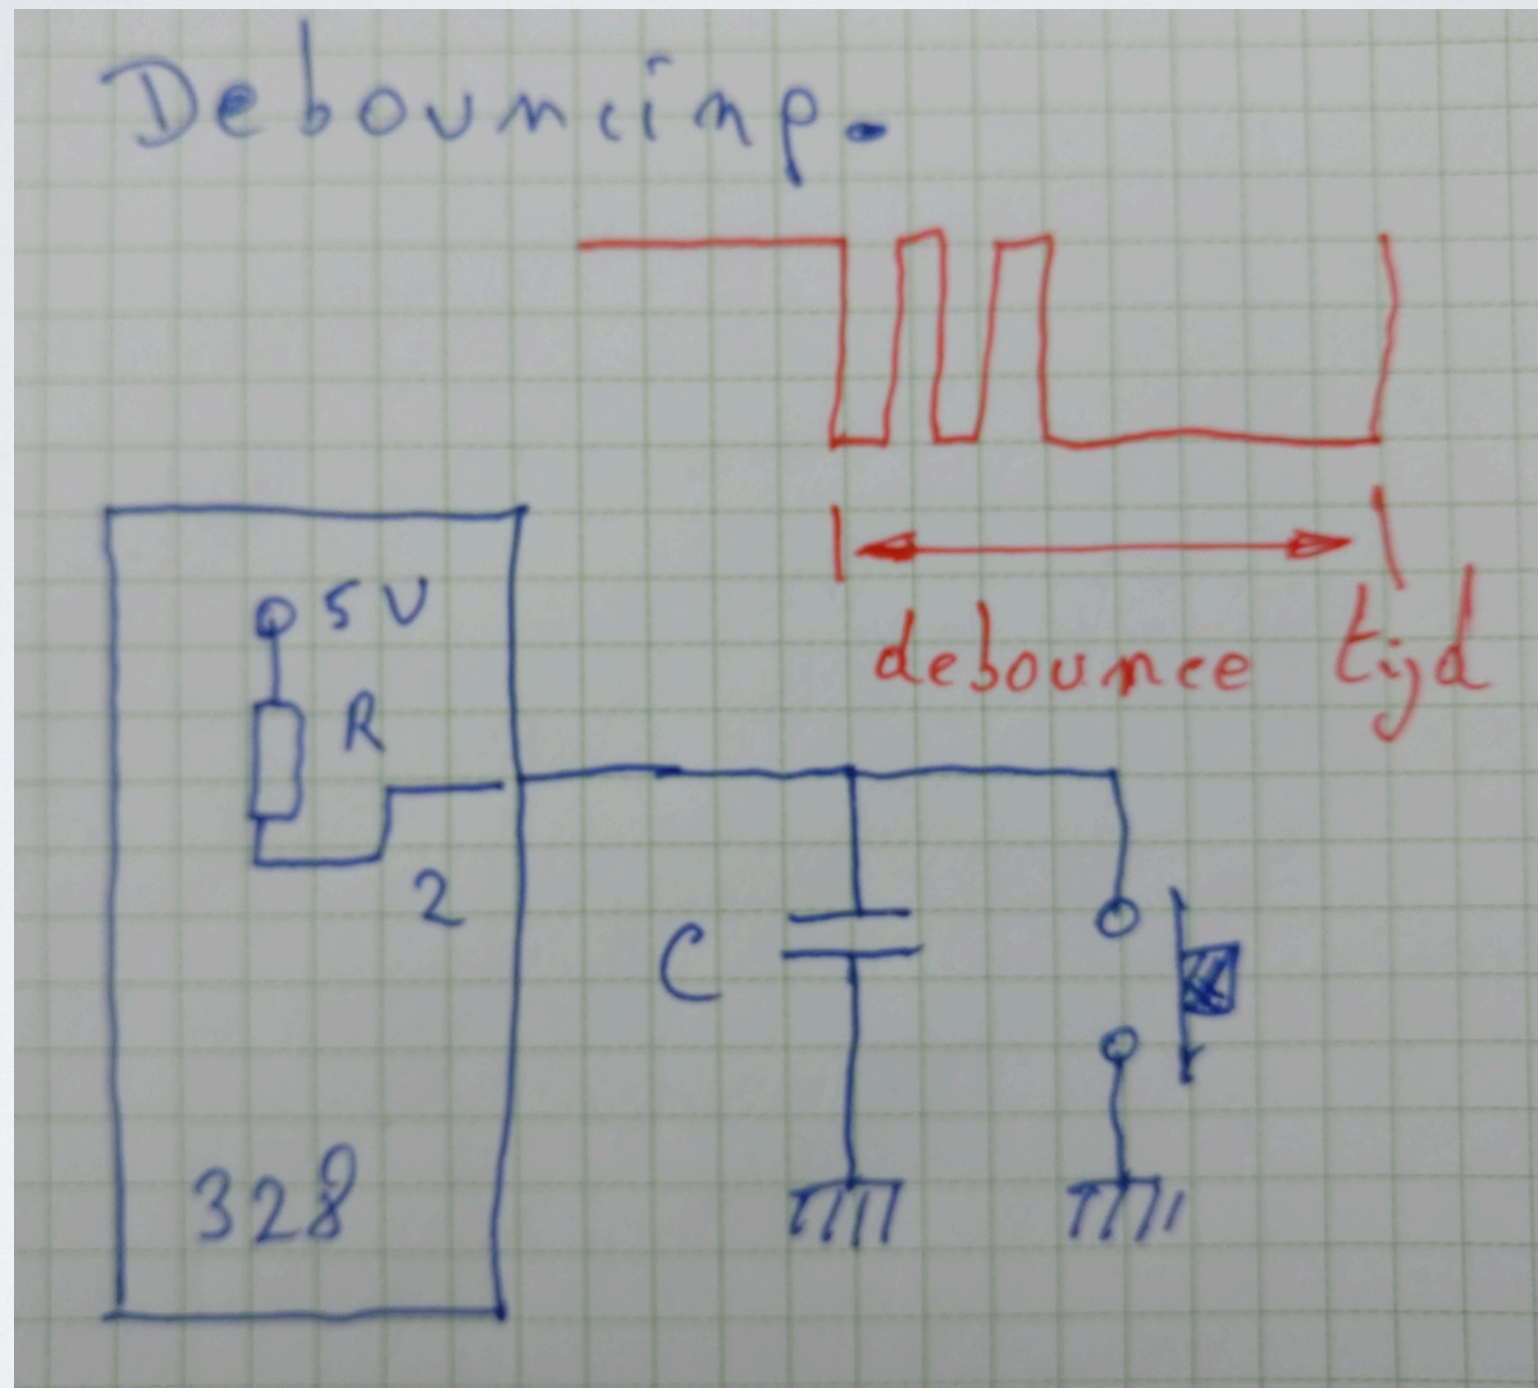 Debouncing.
debounce tijd
5V
R
2
C
328